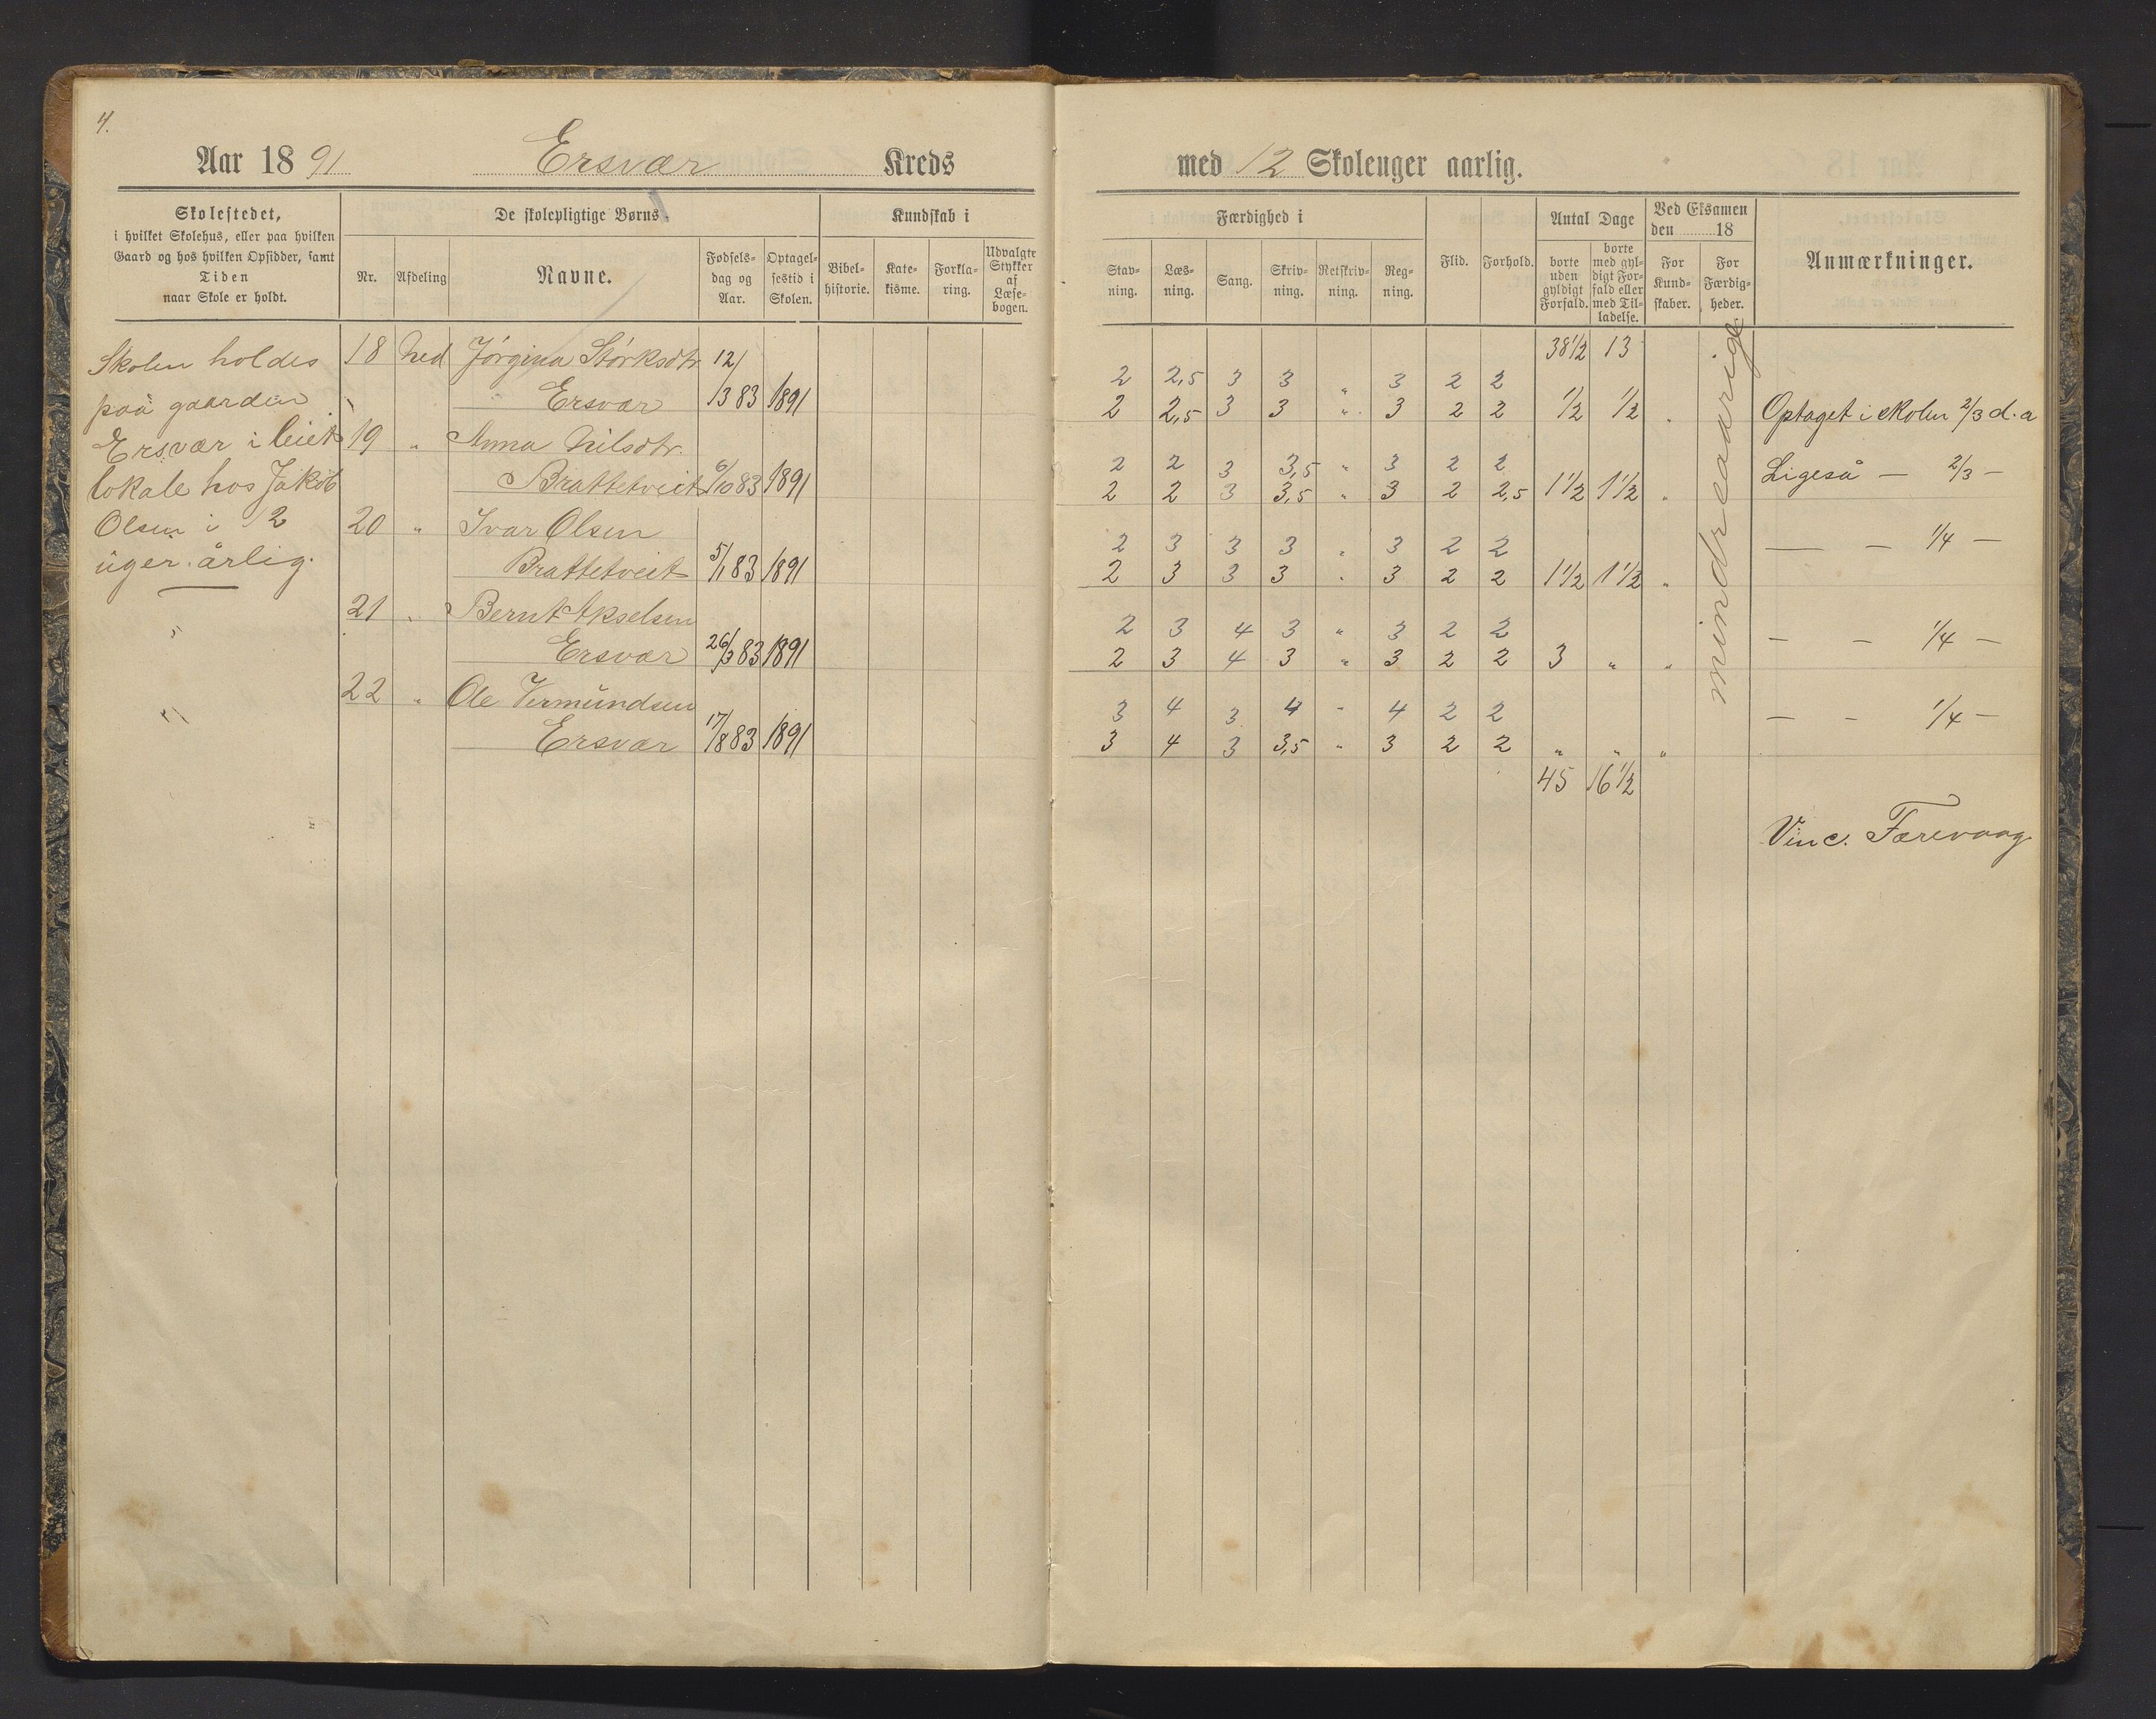 4.
Aar 1891 Ersvær Kreds
med 12 Skoleuger aarlig.
Skolestedet,
i hvilket Skolehus, eller paa hvilken
Gaard og hos hvilken Opsidder, samt
Tiden
naar Skole er holdt.
De skolepligtige Børns.
Nr.
Afdeling
Navne.
Fødsels-
dag og
Aar.
Optagel-
sestid i
Skolen.
Kundskab i
Bibel-
historie.
Kate-
kisme.
Forkla-
ring.
Udvalgte
Stykker
af
Læse-
bogen.
Færdighed i
Stav-
ning.
Læs-
ning.
Sang.
Skriv-
ning.
Retskriv-
ning.
Reg-
ning.
Flid.
Forhold.
Antal Dage
borte
uden
gyldigt
Forfald.
borte
med gyl-
digt For-
fald eller
med Til-
ladelse.
Ved Eksamen
den 18
For
Kund-
skaber.
For
Færdig-
heder.
Anmærkninger.
Skolen holdes
paa gaarden
Ersvær i leiet
lokale hos Jakob
Olsen i 2
uger årlig.
18 Ned Jørgina Størksdtr. 12/
Ersvær 13 83 1891
19 " Anna Nilsdtr.
Brattetveit 6/10 83 1891
20 " Ivar Olsen
Brattetveit 5/1 83 1891
21 " Bernt Akselsen
Ersvær 26/3 83 1891
22 " Ole Vermundsen
Ersvær 17/8 83 1891
38 1/2 13
2 2,5 3 3 " 3 2 2
2 2,5 3 3 " 3 2 2 1/2 1/2 " Optaget i skolen 2/3 d. a
2 2 3 3,5 " 3 2 2 Ligeså — 2/3 —
2 2 3 3,5 " 3 2 2,5 1 1/2 1 1/2 "
2 3 3 3 " 3 2 2 — — 1/4 —
2 3 3 3 " 3 2 2 1 1/2 1 1/2 "
2 3 4 3 " 3 2 2 — — 1/4 —
2 3 4 3 " 3 2 2 3 " "
3 4 3 4 " 4 2 2 — — 1/4 —
3 4 3 3,5 " 3 2 2 " " "
45 16 1/2
mindreaarige
Vinc. Færevaag